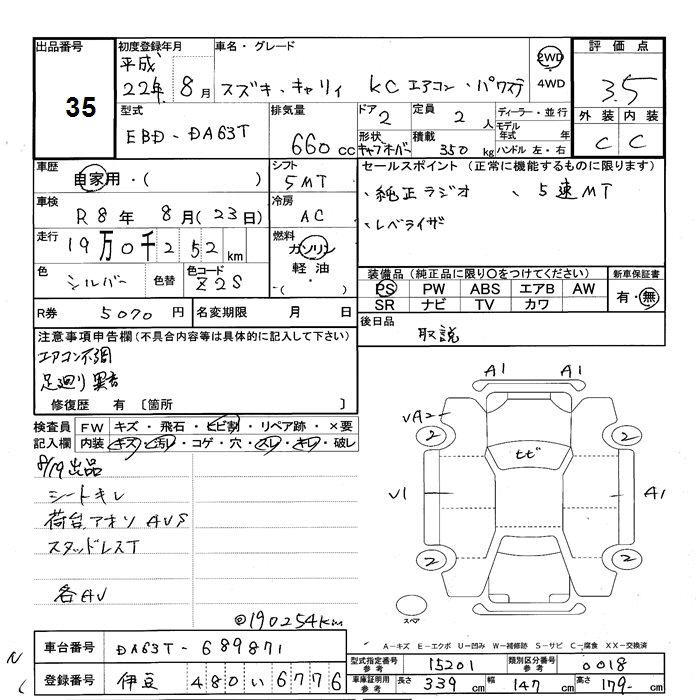 出品番号
35
初度登録年月
平成
22年 8月
車名・グレード
スズキ・キャリィ KC エアコン・パワステ
2WD
4WD
評価点
3.5
型式
EBD-DA63T
排気量
660 cc
ドア 2
形状 キャブオーバ
定員 2 人
積載 350 kg
ディーラー・並行
モデル年式 年式
ハンドル 左・右
外装 内装
C C
車歴
自家用・( )
シフト
5MT
セールスポイント(正常に機能するものに限ります)
・純正ラジオ 、5速MT
・レベライザ
車検
R8年 8月(23日)
冷房
AC
走行
19万0千252km
燃料
ガソリン
軽油
・( )
色
シルバー
色替
色コード
Z2S
装備品(純正品に限り○をつけてください)
PS PW ABS エアB AW
SR ナビ TV カワ
新車保証書
有・無
R券 5070円
名変期限 月 日
後日品
取説
注意事項申告欄(不具合内容等は具体的に記入して下さい)
エアコン不調
足廻り異音
修復歴 有 〔箇所 〕
検査員記入欄
FW キズ・飛石・ヒビ割・リペア跡・×要
内装 キズ・汚レ・コゲ・穴・スレ・キレ・破レ
8/19出品
シートキレ
荷台アオリAUS
スタッドレスT
各AU
@190254km
A1 A1
UA2
2 2
ヒビ
U1 A1
2 2
スペア
A-キズ E-エクボ U-凹み W-補修跡 S-サビ C-腐食 XX-交換済
車台番号 DA63T-689871
登録番号 伊豆 480い6776
型式指定番号 参考 15201
類別区分番号 参考 0018
車庫証明用 参考 長さ 339cm 幅 147cm 高さ 179cm